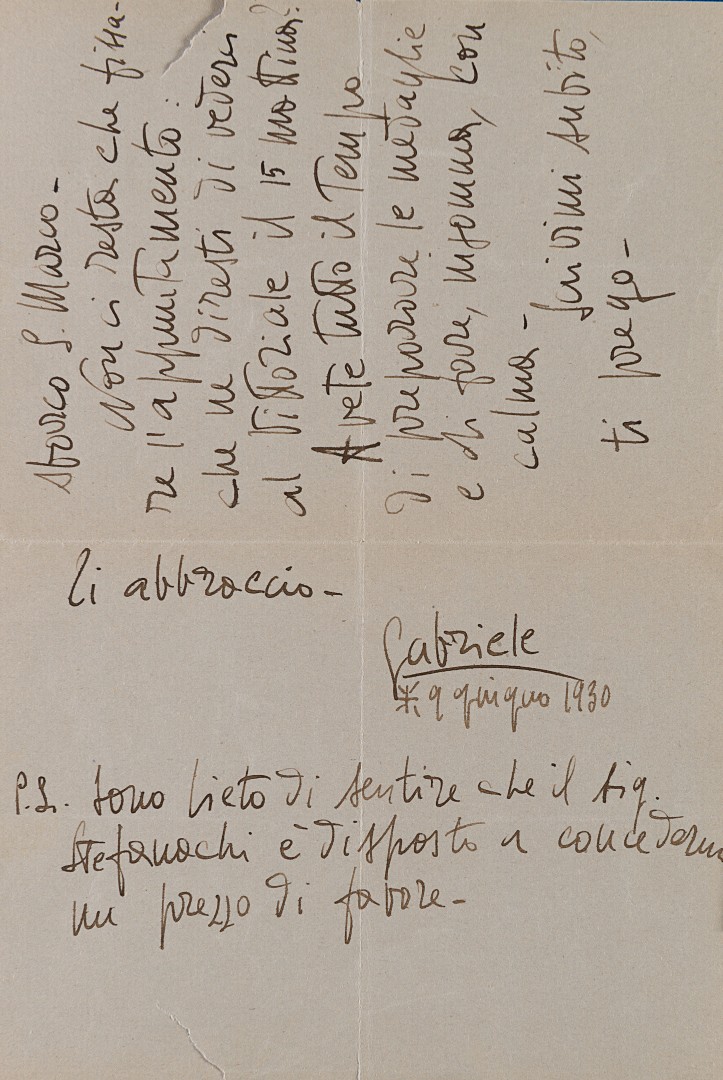 storico S. Marco -
Non ci resta che fissa-
re l'appuntamento:
che ne diresti di vederci
al Vittoriale il 15 mattina?
Avete tutto il tempo
di preparare le medaglie
e di fare, insomma, con
calma - Scrivimi subito,
ti prego -
Ti abbraccio -
Gabriele
9 giugno 1930
P.S. Sono lieto di sentire che il sig.
Stefanachi è disposto a concedermi
un prezzo di favore -